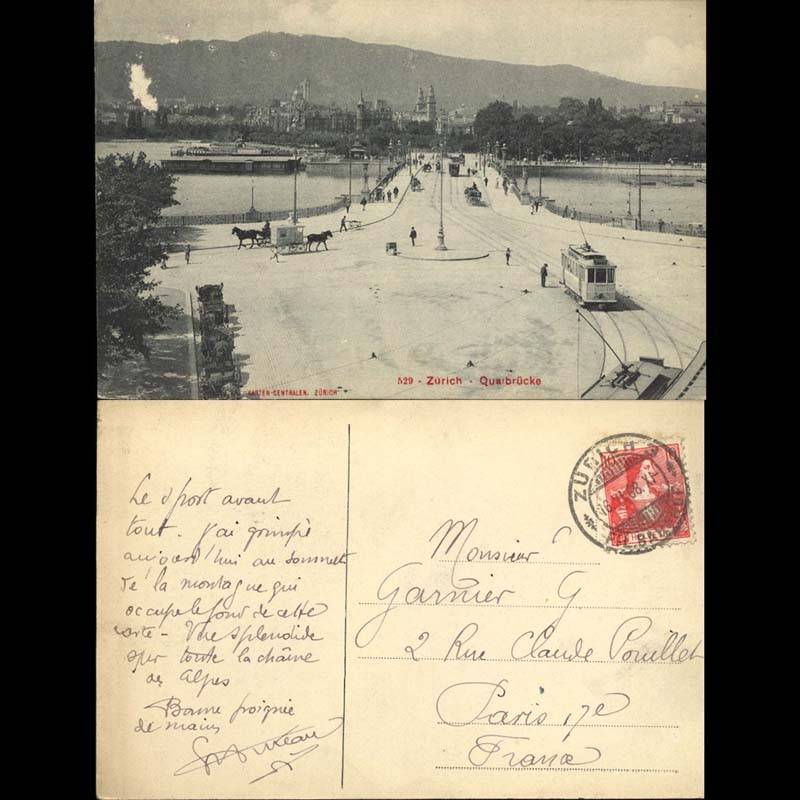 529 - Zürich - Quaibrücke
KARTEN-CENTRALEN, ZÜRICH
Le sport avant
tout. J'ai grimpé
aujourd'hui au sommet
de la montagne qui
occupe le fond de cette
carte - Vue splendide
sur toute la chaîne
des Alpes
Bonne poignée
de mains
ZÜRICH
Monsieur
Garnier G.
2 Rue Claude Pouillet
Paris 17e
France